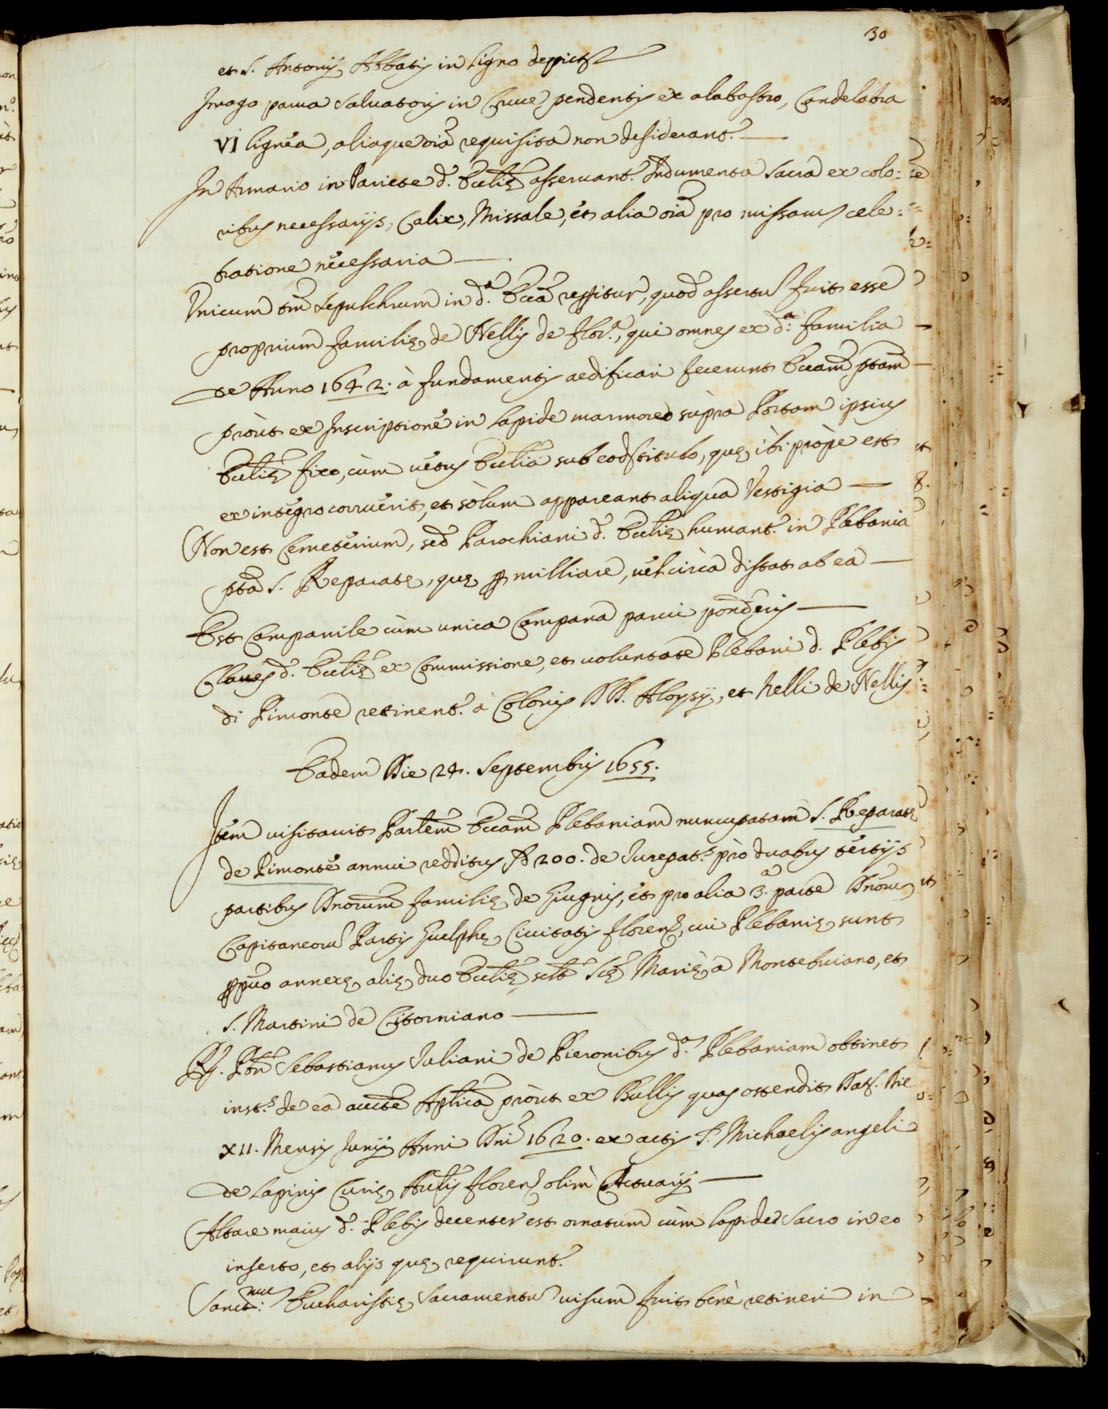 30
et S. Antonij Abbatis in ligno depicta
Imago parva Salvatoris in Cruce pendentis ex alabastro, Candelabra
VI lignea, aliaque oia requisita non desiderant.
In Armario in Pariete d. Eccliȩ asservant. Indumenta Sacra ex colo:
ribus necessarijs, Calix, Missale, et alia oia pro missarum cele:
bratione necessaria
Unicum tm Sepulchrum in d.a Ecca reperitur, quod assertu fuit esse
proprium familiȩ de Nellis de flor.a, qui omnes ex d.a familia
de Anno 1642. à fundamentis aedificari fecerunt Eccam ptam
proùt ex Inscriptione in lapide marmoreo supra Portam ipsius
Eccliȩ fixo, cùm vetus Ecclia sub eod. titulo, quȩ ibi propè est
ex integro corruerit, et sòlum appareant aliqua Vestigia
Non est Cemeterium, sed Parochiani d. Eccliȩ humant. in Plebania
pta S. Reparatȩ, quȩ p milliare, vel circa distat ab ea
Est Campanile cùm unica Campana parvi ponderis
Claves d. Eccliȩ ex Commissione, et voluntate Plebani d. Plebis
di Pimonte retinent. à Colonis DD. Aloysij, et Nelli de Nellis
Eadem Die 24. Septembris 1655.
Item visitavit Parlem Eccam Plebaniam nuncupatam S. Reparatȩ
de Pimonte annui redditus 200. de Iurepat. prò duabus tertijs
partibus Dnorum familiȩ de Giugnis, et pro alia 3.a parte Dnorum
Capitaneoru Partis Guelphȩ Civitatis floren, cui Plebaniȩ sunt
ppuo annexȩ aliȩ duo Eccliȩ, Sciȩ Mariȩ a Montebuiano, et
S. Martini de Citorniano
Pbr Sebastianus Iuliani de Pieronibus d.a Plebaniam obtinet
inst. de ea aucte Aplica proùt ex Bullis quas ostendit Dat. Die
XII. Mensis Junij Anni Dni 1620. ex actis S. Michaelisangeli
de Lapinis Curiȩ Aulis floren olim Actuarij
Altare maius d. Plebis decenter est ornatum cùm lapide Sacro in eo
inserto, et alijs quȩ requirunt.
Sanct:mu Eucharistiȩ Sacramentu visum fuit benè retineri in